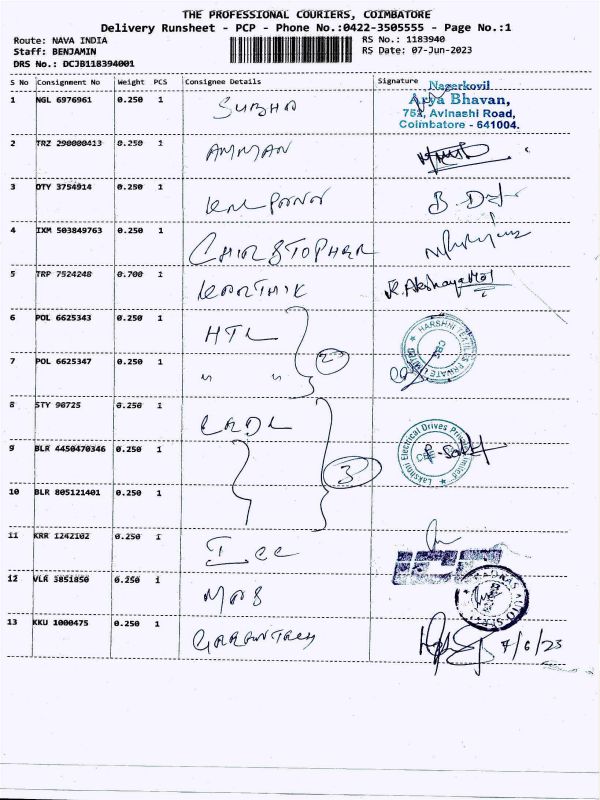 THE PROFESSIONAL COURIERS, COIMBATORE
Delivery Runsheet - PCP - Phone No.:0422-3505555 - Page No.:1
Route: NAVA INDIA
RS No.: 1183940
Staff: BENJAMIN
RS Date: 07-Jun-2023
DRS No.: DCJB118394001
S No Consignment No Weight PCS Consignee Details Signature
Nagerkovil
Arya Bhavan,
752, Avinashi Road,
Coimbatore - 641004.
1 NGL 6976961 0.250 1 SUBHA
2 TRZ 290000413 0.250 1 AMMAN
3 DTY 3754914 0.250 1
4 IXM 503849763 0.250 1 CHIRSTOPHER
5 TRP 7524248 0.700 1 KARTHIK K.Akshaya
6 POL 6625343 0.250 1 HTL
HARSHNI TEXTILES PRIVATE LIMITED
CBE
7 POL 6625347 0.250 1 " "
2
8 STY 90725 0.250 1
Lakshni Electrical Drives Private Limited
CBE
9 BLR 4450470346 0.250 1
3
10 BLR 805121401 0.250 1
11 KRR 1242102 0.250 1 ICC
12 VLR 3851850 0.250 1 MAS
MADRAS AUTO SER
13 KKU 1000475 0.250 1
7/6/23